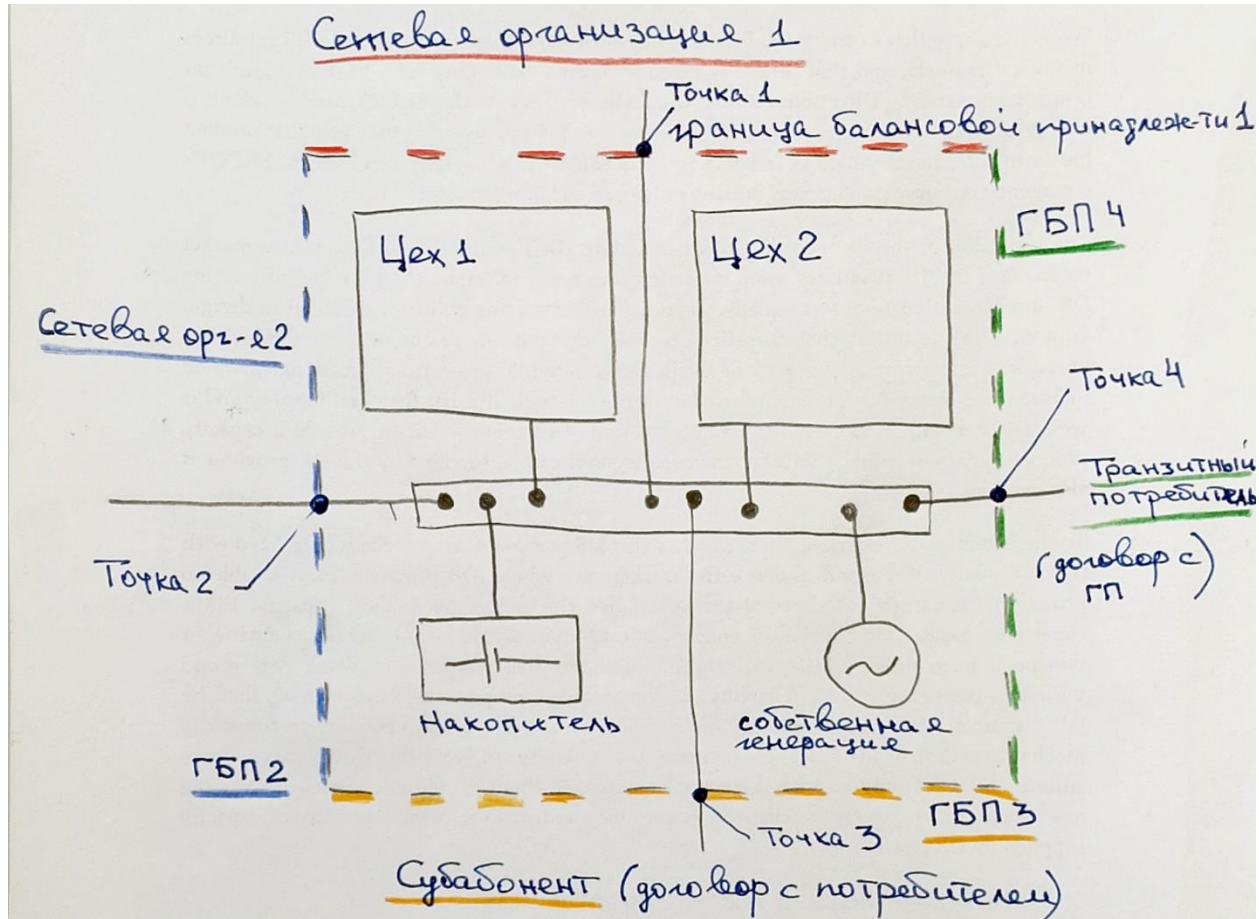 Сетевая организация 1
Точка 1
граница балансовой принадлеж-ти 1
Цех 1
Цех 2
ГБП 4
Сетевая орг-я 2
Точка 4
Транзитный
потребитель
(договор с
ГП)
Точка 2
Накопитель
собственная
генерация
ГБП 2
ГБП 3
Точка 3
Субабонент (договор с потребителем)